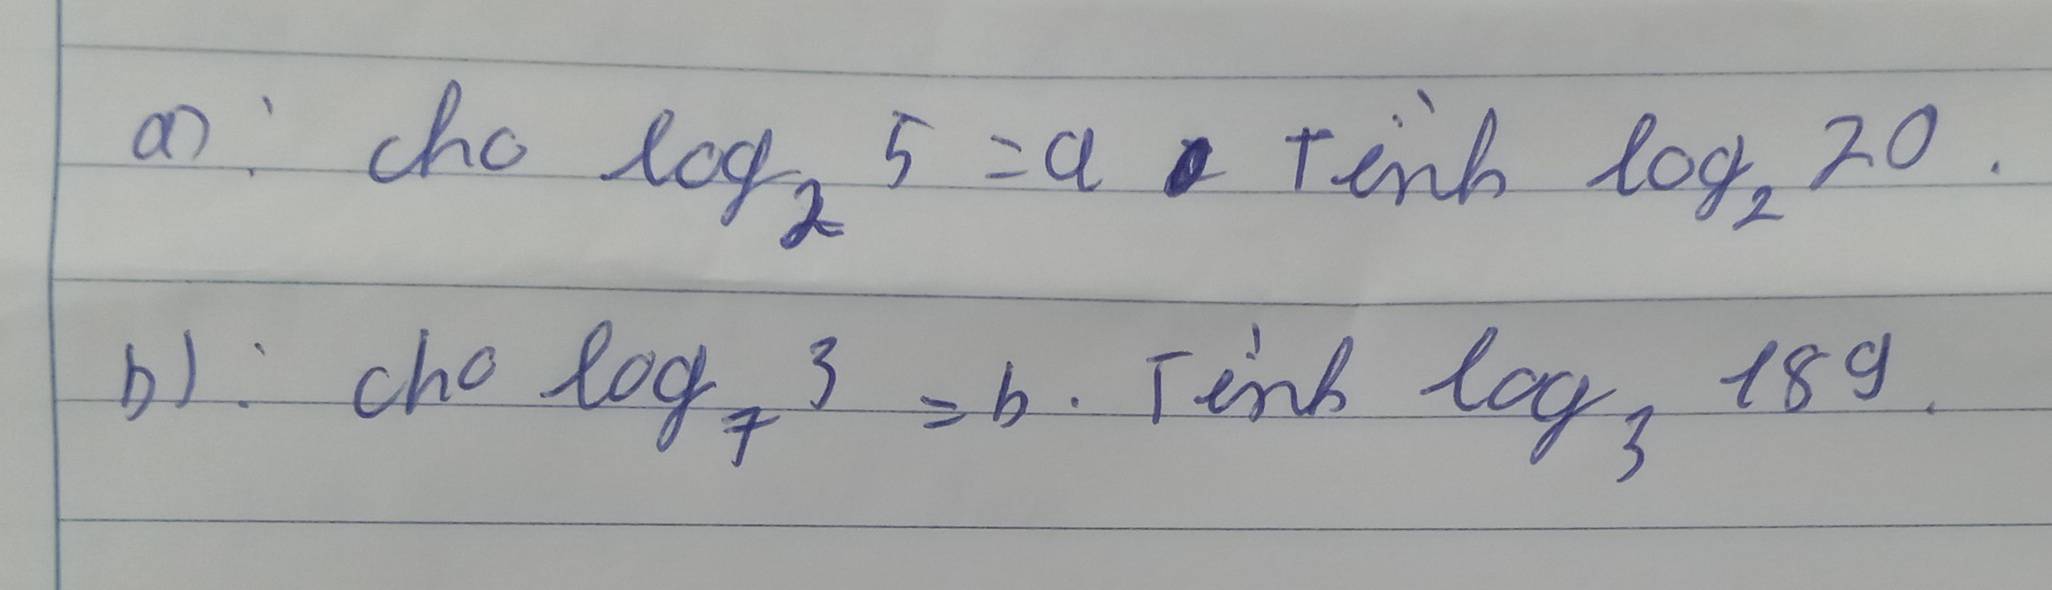 a): cho log₂ 5 = a. Tính log₂ 20.
b): cho log₇ 3 = b. Tính log₃ 189.